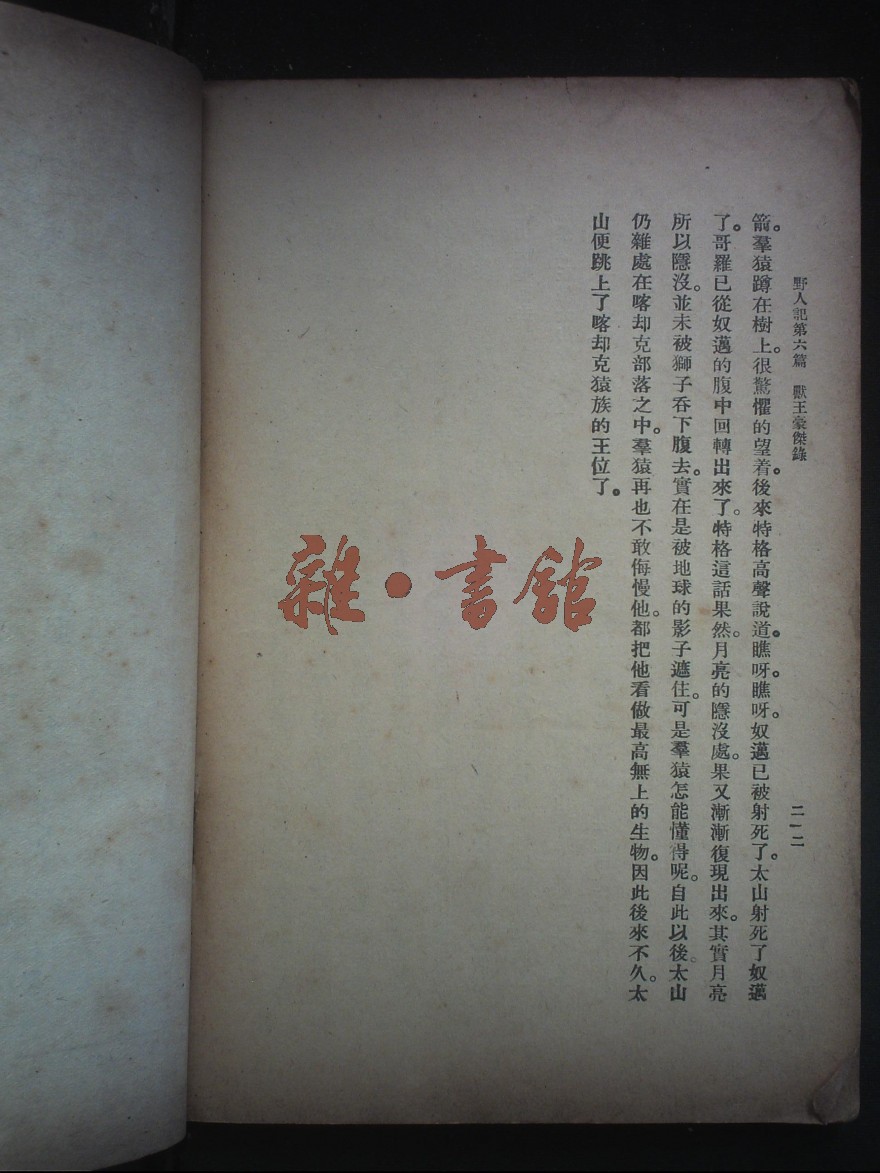 野人記第六篇　獸王豪傑錄　二一二
箭。羣猿蹲在樹上。很驚懼的望着。後來特格高聲說道。瞧呀。瞧呀。奴邁已被射死了。太山射死了奴邁
了。哥羅已從奴邁的腹中回轉出來了。特格這話果然。月亮的隱沒處。果又漸漸復現出來。其實月亮
所以隱沒。並未被獅子吞下腹去。實在是被地球的影子遮住。可是羣猿怎能懂得呢。自此以後。太山
仍雜處在喀却克部落之中。羣猿再也不敢侮慢他。都把他看做最高無上的生物。因此後來不久。太
山便跳上了喀却克猿族的王位了。
雜·書館